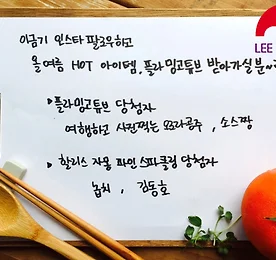 이금기 인스타 팔로우하고
올여름 HOT 아이템, 플라밍고튜브 받아가실분~
LEE
▸플라밍고튜브 당첨자
여행하고 사진찍는 오즈라공주, 소스짱
▸할리스 자몽 파인 스파클링 당첨자
놉치, 김동호